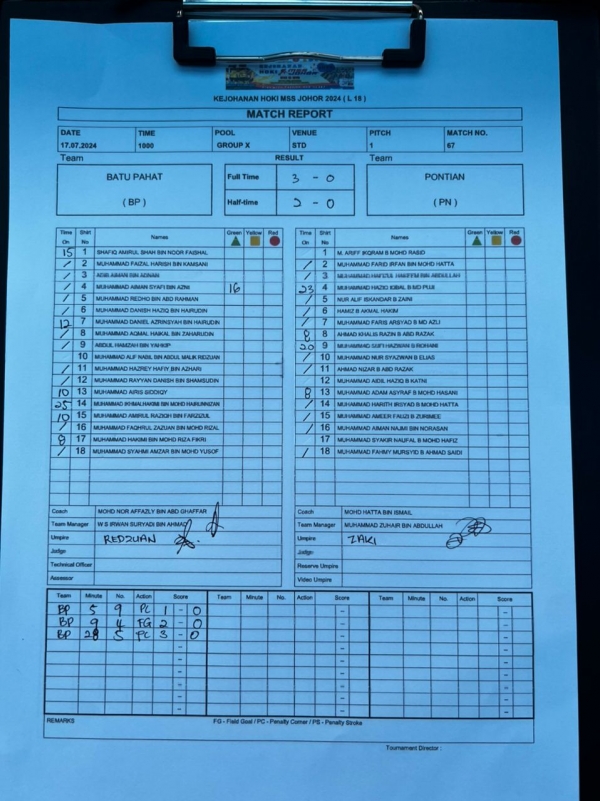 KEJOHANAN HOKI MSS JOHOR 2024 ( L 18 )
MATCH REPORT
DATE TIME POOL VENUE PITCH MATCH NO.
17.07.2024 1000 GROUP X STD 1 67
Team RESULT Team
BATU PAHAT Full Time 3 - 0 PONTIAN
( BP ) Half-time 2 - 0 ( PN )
Time On Shirt No Names Green Yellow Red
15 1 SHAFIQ AMIRUL SHAH BIN NOOR FAISHAL
/ 2 MUHAMMAD FAIZAL HARISH BIN KAMSANI
/ 3 BIN
/ 4 MUHAMMAD AIMAN SYAFI BIN AZINI 16
/ 5 MUHAMMAD REDHO BIN ABD RAHMAN
/ 6 MUHAMMAD DANISH HAZIQ BIN HAIRUDIN
12 7 MUHAMMAD DANIEL AZRINSYAH BIN HAIRUDIN
/ 8 MUHAMMAD AQMAL HAIKAL BIN ZAHARUDIN
/ 9 ABDUL HAMIZAH BIN
10 MUHAMMAD ALIF NABIL BIN ABDUL MALIK RIDZUAN
/ 11 MUHAMMAD HAZREY HAFIY BIN AZHARI
/ 12 MUHAMMAD RAYYAN DANISH BIN SHAMSUDIN
10 13 MUHAMMAD AIRIS SIDDIQY
25 14 MUHAMMAD IKHMAL HAKIMI BIN MOHD HAIRUNNIZAN
10 15 MUHAMMAD AMIRUL RAZIQH BIN FARZIZUL
/ 16 MUHAMMAD FAQHRUL ZAZUAN BIN MOHD RIZAL
8 17 MUHAMMAD HAKIMI BIN MOHD RIZA FIKRI
/ 18 MUHAMMAD SYAHMI AMZAR BIN MOHD YUSOF
Coach MOHD NOR AFFAZLY BIN ABD GHAFFAR
Team Manager W S IRWAN SURYADI BIN AHMAD
Umpire REDZUAN
Judge
Technical Officer
Assessor
Time On Shirt No Names Green Yellow Red
1 M. ARIFF IKQRAM B MOHD RASID
/ 2 MUHAMMAD FARID IRFAN BIN MOHD HATTA
/ 3 MUHAMMAD HAFIZUL HAKEEM BIN ABDULLAH
23 4 MUHAMMAD HAZIQ IQBAL B MD PUJI
/ 5 NUR ALIF ISKANDAR B ZAINI
/ 6 HAMIZ B AKMAL HAKIM
/ 7 MUHAMMAD FARIS ARSYAD B MD AZLI
8 8 AHMAD KHALIS RAZIN B ABD RAZAK
20 9 MUHAMMAD SUFI HAZWAN B ROHANI
/ 10 MUHAMMAD NUR SYAZWAN B ELIAS
/ 11 AHMAD NIZAR B ABD RAZAK
12 MUHAMMAD AIDIL HAZIQ B KATNI
8 13 MUHAMMAD ADAM ASYRAF B MOHD HASANI
/ 14 MUHAMMAD HARITH IRSYAD B MOHD HATTA
/ 15 MUHAMMAD AMEER FAUZI B ZURIMEE
/ 16 MUHAMMAD AIMAN NAJMI BIN NORASAN
17 MUHAMMAD SYAKIR NAUFAL B MOHD HAFIZ
/ 18 MUHAMMAD FAHMY MURSYID B AHMAD SAIDI
Coach MOHD HATTA BIN ISMAIL
Team Manager MUHAMMAD ZUHAIR BIN ABDULLAH
Umpire ZAKI
Judge
Reserve Umpire
Video Umpire
Team Minute No. Action Score Team Minute No. Action Score Team Minute No. Action Score
BP 5 9 PC 1 - 0
BP 9 4 FG 2 - 0
BP 28 5 PC 3 - 0
REMARKS FG - Field Goal / PC - Penalty Corner / PS - Penalty Stroke
Tournament Director :